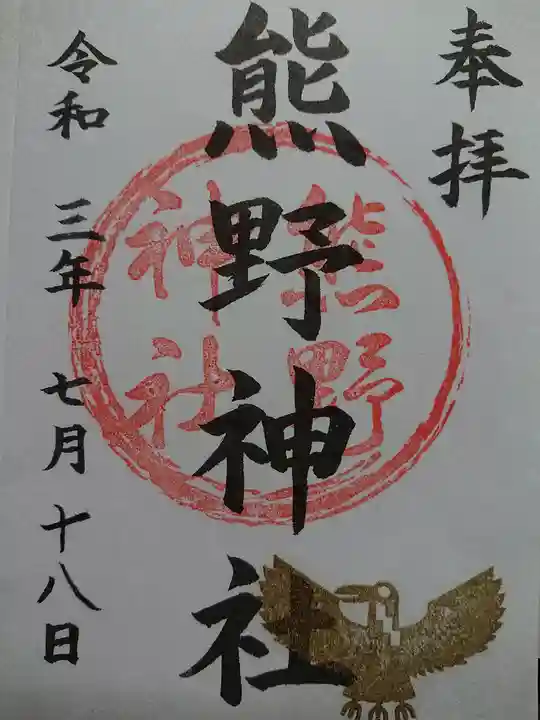 奉拝
熊野神社
熊野
神社
令和 三年 七月 十八日